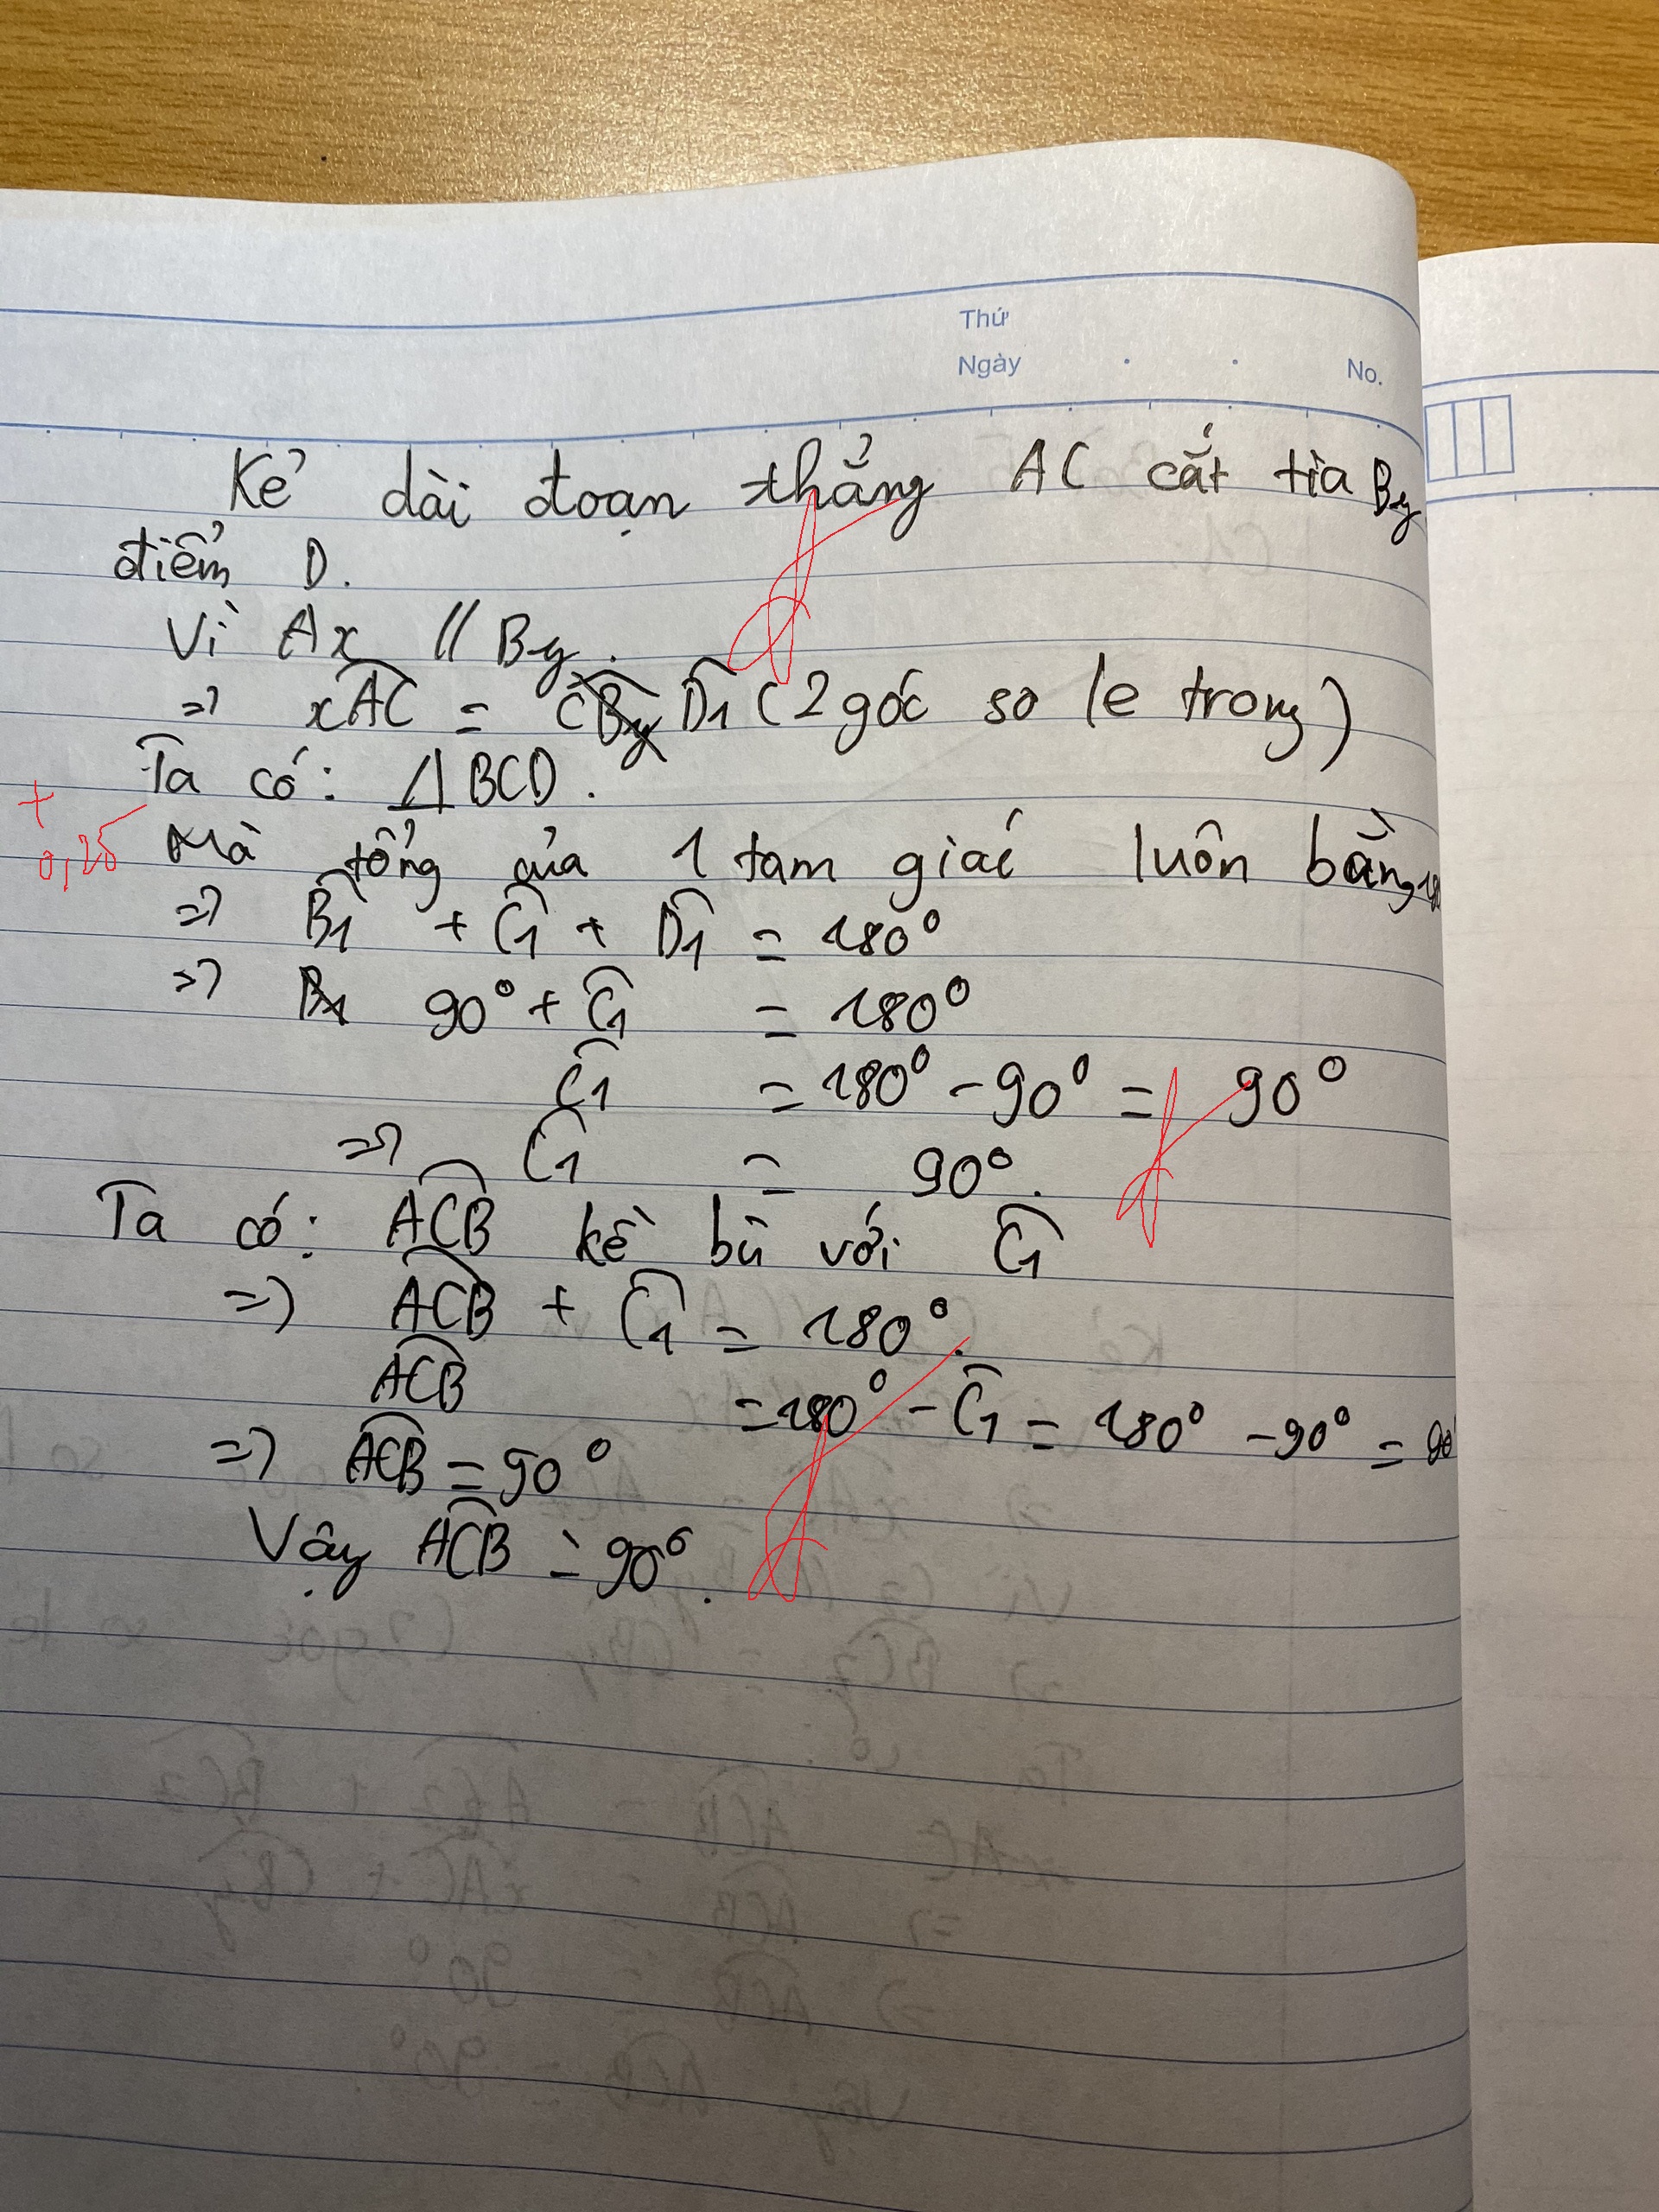 Thứ
Ngày
No.
Kẻ dài đoạn thẳng AC cắt tia By
điểm D.
Vì Ax // By.
=> xAC = CBy D1 (2 góc so le trong)
Ta có: △BCD.
+
0,25
Mà tổng của 1 tam giác luôn bằng 180
=> B1 + C1 + D1 = 180°
=> B1 90° + C1 = 180°
C1 = 180° - 90° = 90°
=> C1 = 90°.
Ta có: ACB kề bù với C1
=> ACB + C1 = 180°.
ACB = 180° - C1 = 180° - 90° = 90°
=> ACB = 90°
Vậy ACB = 90°.